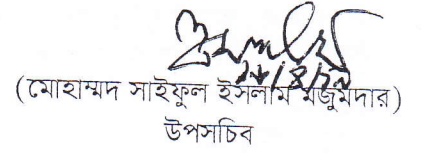 (মোহাম্মদ সাইফুল ইসলাম মজুমদার)
উপসচিব